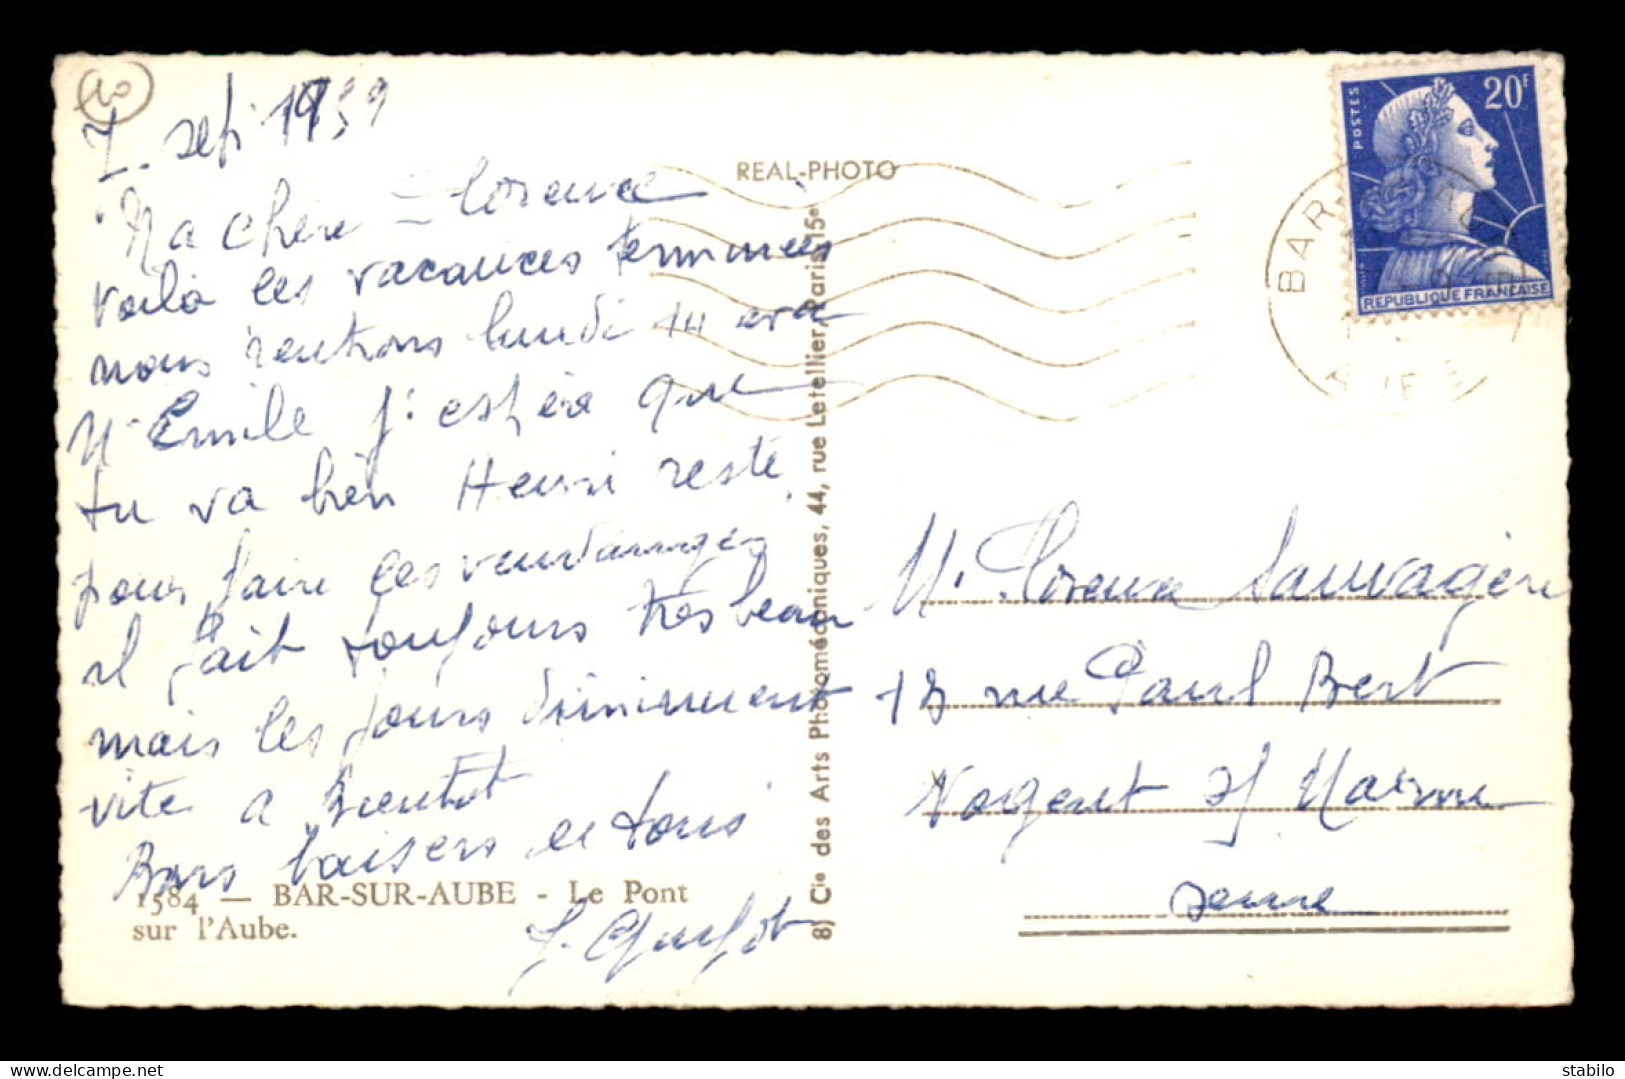 10
7 - sept 1959
Ma chère Florence
voilà les vacances terminées
nous rentrons lundi 14 avec
Mr Emile j'espère que
tu va bien Henri reste
pour faire les vendanges
il fait toujours très beau
mais les jours diminuent
vite a Bientot
Bons baisers de tous
1584 — BAR-SUR-AUBE - Le Pont
sur l'Aube.
REAL-PHOTO
8) Cie des Arts Photomécaniques, 44, rue Letellier, Paris-15e
POSTES
20F
REPUBLIQUE FRANÇAISE
BAR
AUBE
M. Florence Sauvagère
18 rue Paul Bert
Nogent s/ Marne
Seine
stabilo